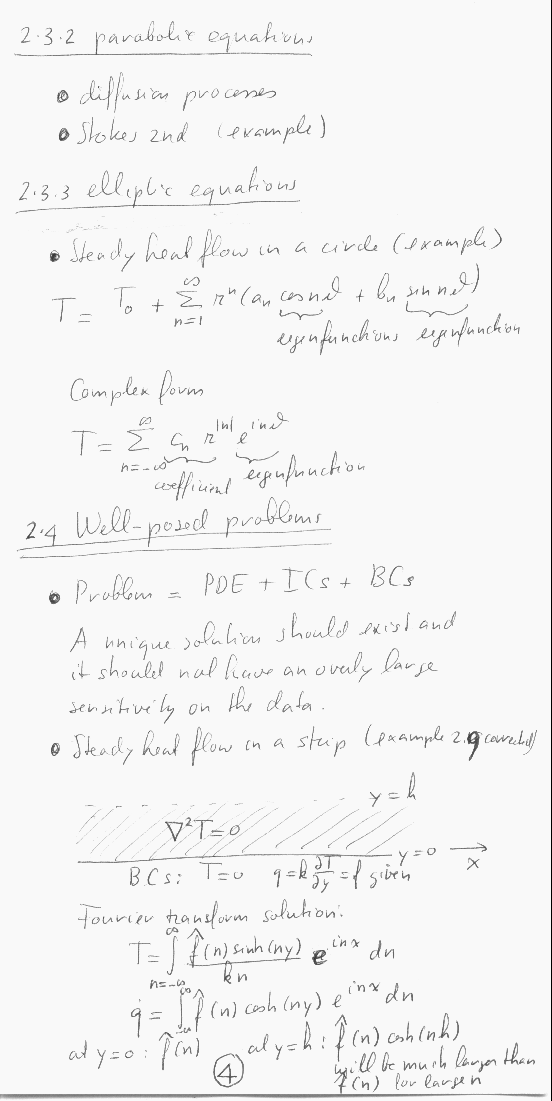 2.3.2 parabolic equations
• diffusion processes
• Stokes 2nd (example)
2.3.3 elliptic equations
• Steady heat flow in a circle (example)
T = T₀ + ∑_{n=1}^{∞} rⁿ (aₙ cos nϑ + bₙ sin nϑ)
eigenfunctions eigenfunction
Complex form
T = ∑_{n=-∞}^{∞} cₙ r^{|n|} e^{inϑ}
coefficient eigenfunction
2.4 Well-posed problems
• Problem = PDE + ICs + BCs
A unique solution should exist and
it should not have an overly large
sensitivity on the data.
• Steady heat flow in a strip (example 2.9 corrected)
y = h
∇²T=0
y=0 → x
BCs: T=0 q=k ∂T/∂y = f given
Fourier transform solution:
T = ∫_{n=-∞}^{∞} f̂(n) sinh(ny) / kn e^{inx} dn
q = ∫_{-∞}^{∞} f̂(n) cosh(ny) e^{inx} dn
at y=0: f̂(n) at y=h: f̂(n) cosh(nh)
will be much larger than
f̂(n) for large n
4